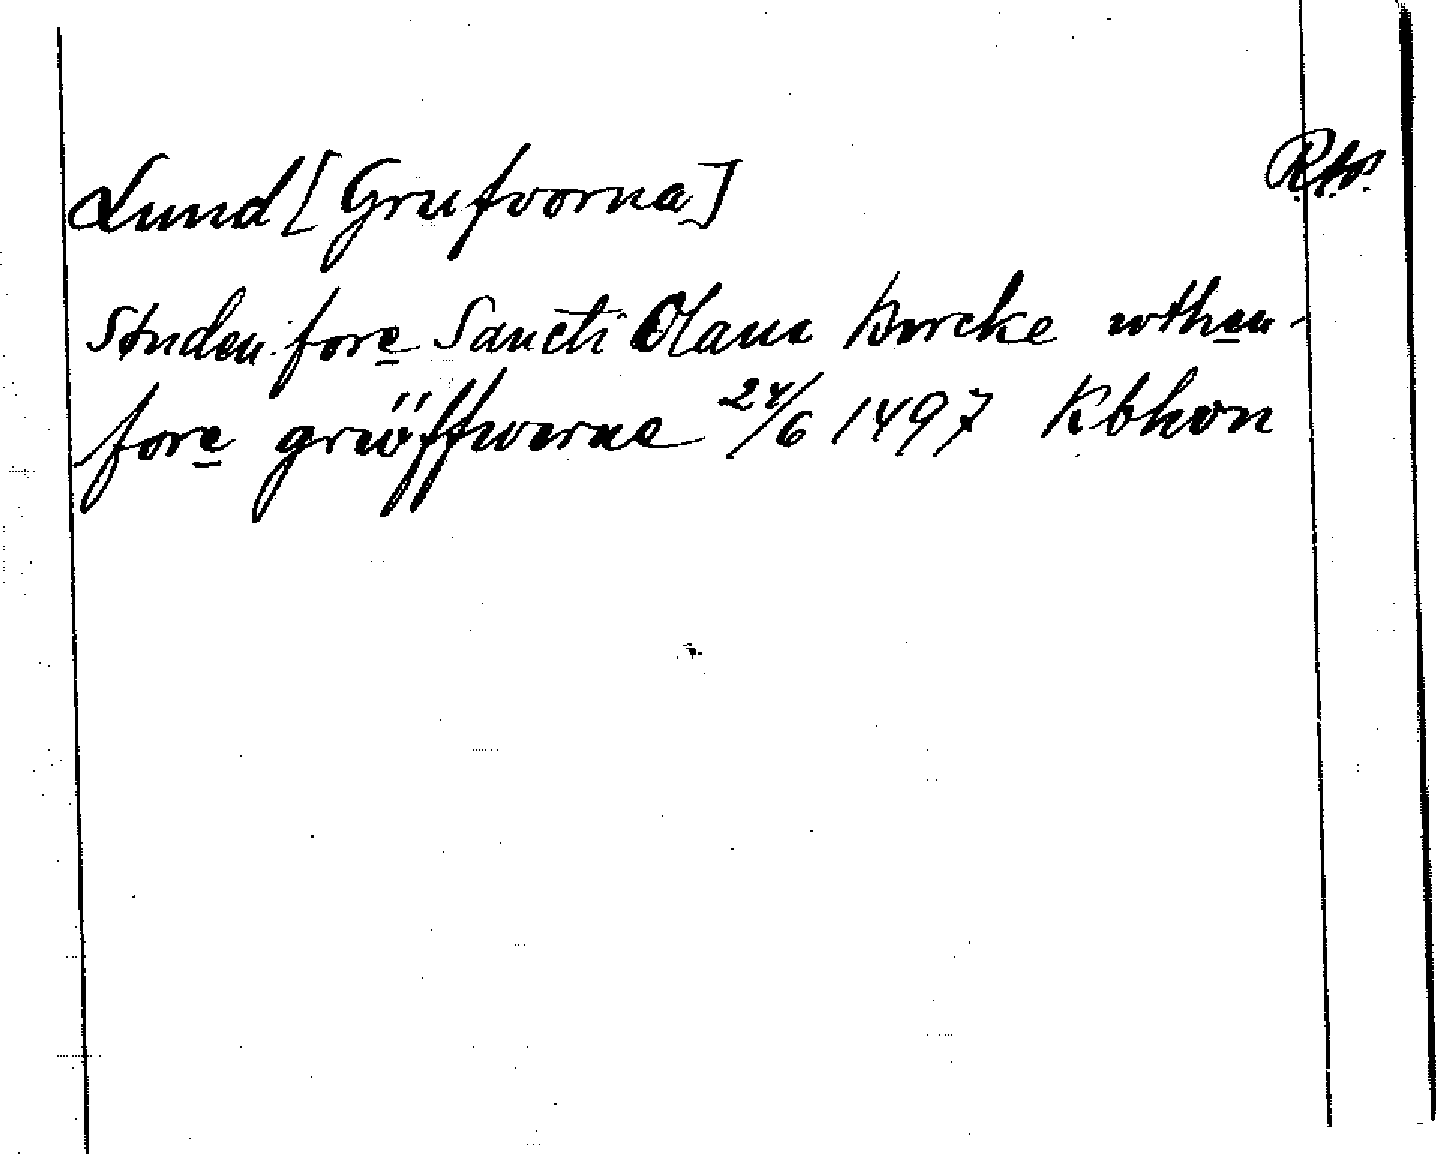 Lund [Grufvorna]
Studen fore Sancti Olaua kircke wthen-
fore grwöffwerne 24/6 1497 Kbhvn